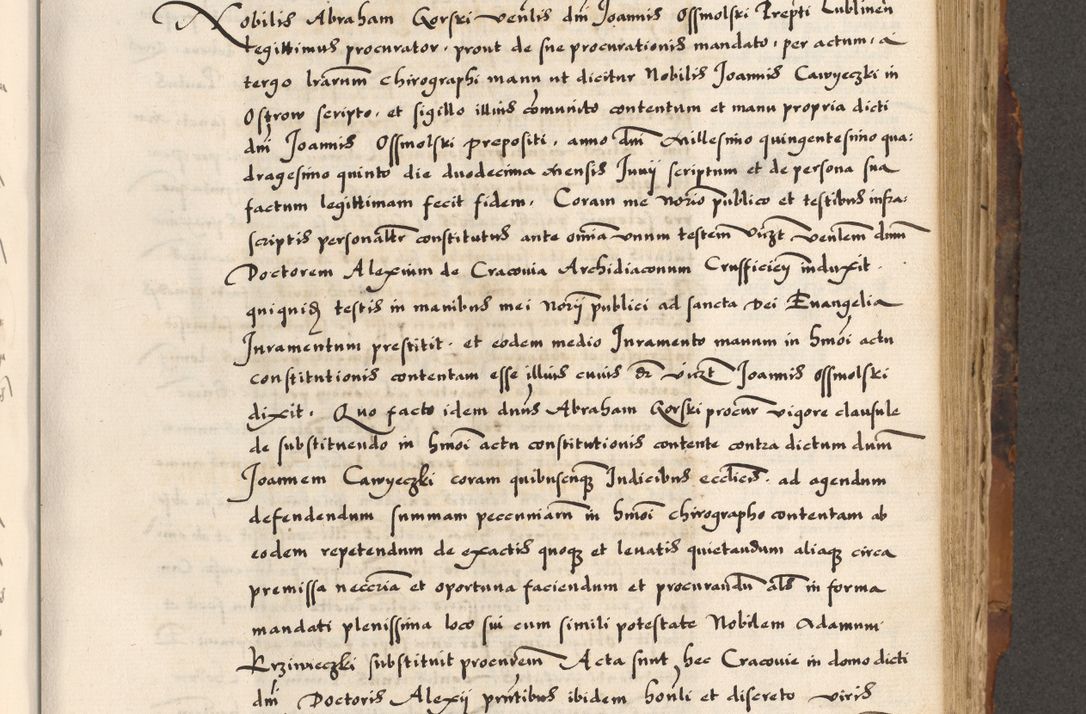 Nobilis Abraham Gorski venlis dni Joannis Ossmolski Prepti Lublinen
legittimus procurator, prout de sue procurationis mandato, per actum, a
tergo lrarum chirographi manu ut dicitur Nobilis Joannis Cawyeczki in
Ostrow scripto, et sigillo illius comunito contentum et manu propria dicti
dni Joannis Ossmolski prepositi, anno dni Millesimo quingentesimo qua:
dragesimo quinto die duodecima mensis Junij scriptum et de persona sua
factum legittimam fecit fidem. Coram me Notrio publico et testibus infra:
scriptis personalr constitutus ante omia unum testem vizt venlem dnum
Doctorem Alexium de Cracovia Archidiaconum Crufficien induxit.
quiquid testis in manibus mei Notrij publici ad sancta Dei Euangelia
Juramentum prestitit, et eodem medio Juramento manum in hmoi actu
constitutionis contentam esse illius cuius dr vizt Joannis Ossmolski
dixit. Quo facto idem dnus Abraham Gorski procur vigore clausule
de substituendo in hmoi actu constitutionis contente contra dictum dnum
Joannem Cawyeczki coram quibuscunq Iudicibus ecclicis, ad agendum
defendendum summam peccuniaru in hmoi chirographo contentam ab
eodem repetendum de exactis quoq et leuatis quietandum aliaq circa
premissa neccria et oportuna faciendum et procurandu als in forma
mandati plenissima loco sui cum simili potestate Nobilem Adamum
Krziwieczki substituit procurem Acta sunt hec Cracovie in domo dicti
dni Doctoris Alexij pntibus ibidem honli et discreto viris